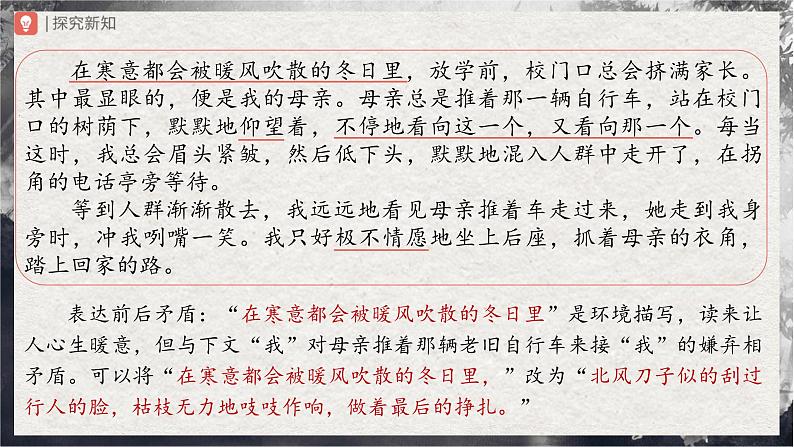 | 探究新知
在寒意都会被暖风吹散的冬日里，放学前，校门口总会挤满家长。
其中最显眼的，便是我的母亲。母亲总是推着那一辆自行车，站在校门
口的树荫下，默默地仰望着，不停地看向这一个，又看向那一个。每当
这时，我总会眉头紧皱，然后低下头，默默地混入人群中走开了，在拐
角的电话亭旁等待。
等到人群渐渐散去，我远远地看见母亲推着车走过来，她走到我身
旁时，冲我咧嘴一笑。我只好极不情愿地坐上后座，抓着母亲的衣角，
踏上回家的路。
表达前后矛盾：“在寒意都会被暖风吹散的冬日里”是环境描写，读来让
人心生暖意，但与下文“我”对母亲推着那辆老旧自行车来接“我”的嫌弃相
矛盾。可以将“在寒意都会被暖风吹散的冬日里，”改为“北风刀子似的刮过
行人的脸，枯枝无力地吱吱作响，做着最后的挣扎。”